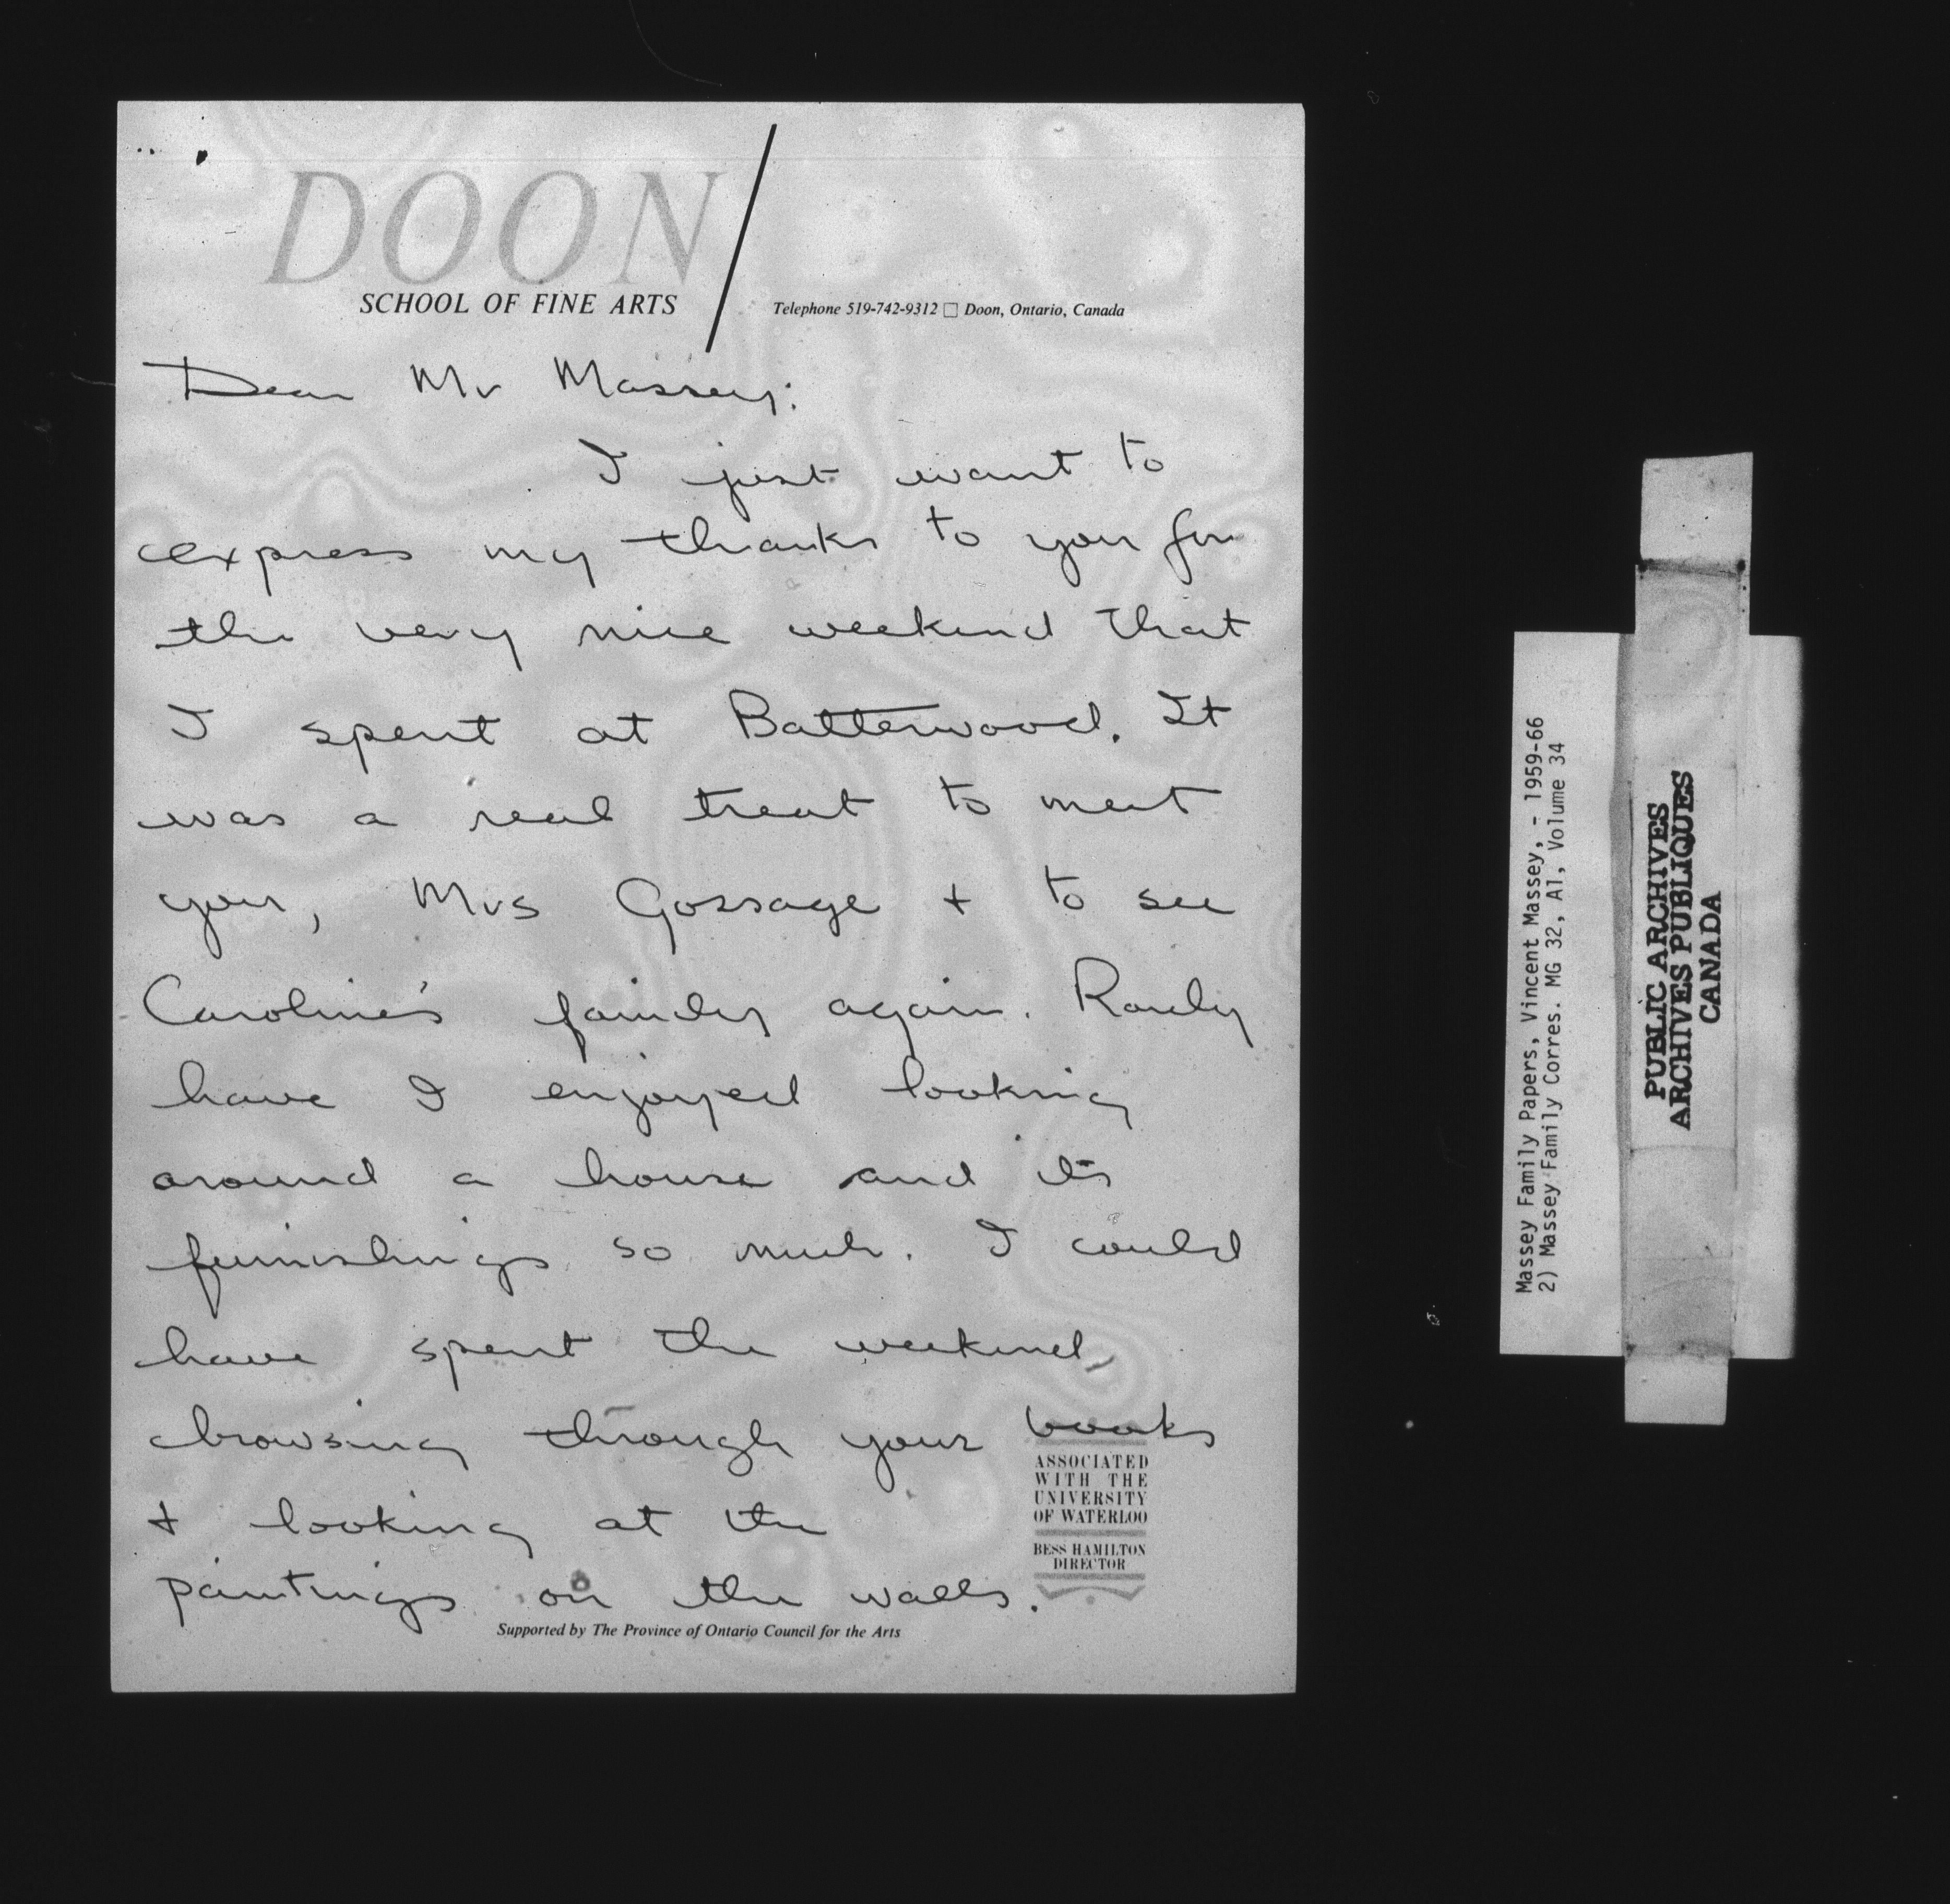 DOON
SCHOOL OF FINE ARTS
Telephone 519-742-9312 □ Doon, Ontario, Canada
Dear Mr Massey:
I just want to
express my thanks to you for
the very nice weekend that
I spent at Batterwood. It
was a real treat to meet
you, Mrs Gossage + to see
Caroline's family again. Rarely
have I enjoyed looking
around a house and it's
furnishings so much. I could
have spent the weekend
browsing through your books
+ looking at the
paintings on the walls.
ASSOCIATED
WITH THE
UNIVERSITY
OF WATERLOO
BESS HAMILTON
DIRECTOR
Supported by The Province of Ontario Council for the Arts
Massey Family Papers, Vincent Massey, - 1959-66
2) Massey Family Corres. MG 32, A1, Volume 34
PUBLIC ARCHIVES
ARCHIVES PUBLIQUES
CANADA